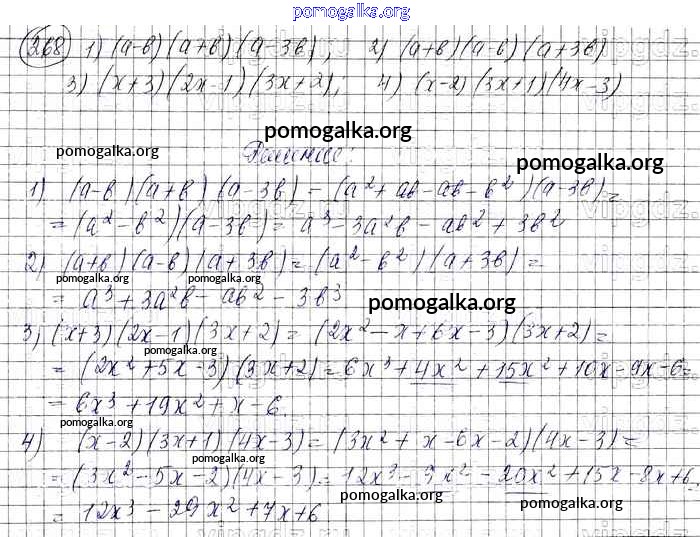 pomogalka.org
268 1) (а-в)(а+в)(а-3в), 2) (а+в)(а-в)(а+3в)
3) (x+3)(2x-1)(3x+2), 4) (x-2)(3x+1)(4x-3)
pomogalka.org
pomogalka.org
Решение:
pomogalka.org
1) (а-в)(а+в)(а-3в) = (а²+ав-ав-в²)(а-3в)=
= (а²-в²)(а-3в) = а³-3а²в-ав²+3в²
2) (а+в)(а-в)(а+3в) = (а²-в²)(а+3в)=
pomogalka.org
pomogalka.org
= а³+3а²в-ав²-3в³
pomogalka.org
3) (x+3)(2x-1)(3x+2) = (2x²-x+6x-3)(3x+2)=
pomogalka.org
= (2x²+5x-3)(3x+2)=6x³+4x²+15x²+10x-9x-6=
= 6x³+19x²+x-6.
pomogalka.org
4) (x-2)(3x+1)(4x-3)=(3x²+x-6x-2)(4x-3)=
pomogalka.org
= (3x²-5x-2)(4x-3)=12x³-9x²-20x²+15x-8x+6
pomogalka.org
pomogalka.org
= 12x³-29x²+7x+6